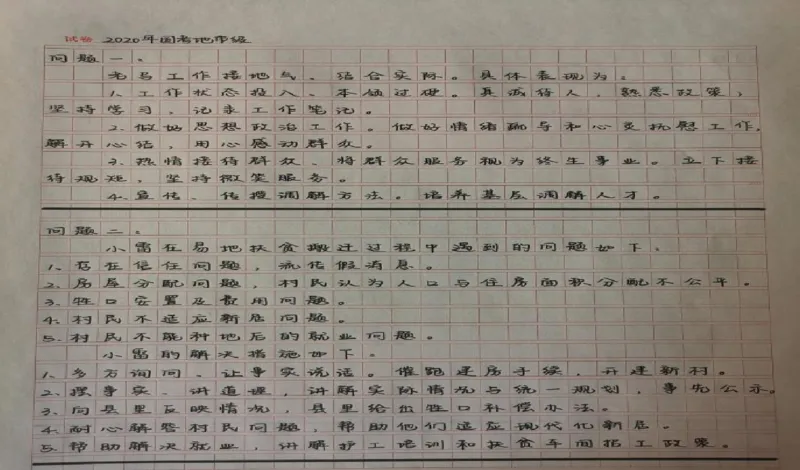 试卷 2020年国考地市级
问题一。
老马工作接地气、结合实际。具体表现为:
1.工作状态投入、本领过硬。真诚待人,熟悉政策,
坚持学习、记录工作笔记。
2.做好思想政治工作。做好情绪疏导和心灵抚慰工作,
解开心结,用心感动群众。
3.热情接待群众、将群众服务视为终生事业。立下接
待规矩,坚持微笑服务。
4.宣传、传授调解方法。培养基层调解人才。
问题二。
小雷在易地扶贫搬迁过程中遇到的问题如下:
1.存在信任问题,流传假消息。
2.房屋分配问题,村民认为人口与住房面积分配不公平。
3.牲口安置及费用问题。
4.村民不适应新居问题。
5.村民不能种地后的就业问题。
小雷的解决措施如下。
1.多方询问、让事实说话。催跑建房手续,开建新村。
2.摆事实、讲道理,讲解实际情况与统一规划,事先公示。
3.向县里反映情况,县里给出牲口补偿办法。
4.耐心解答村民问题,帮助他们适应现代化新居。
5.帮助解决就业,讲解护工培训和扶贫车间招工政策。